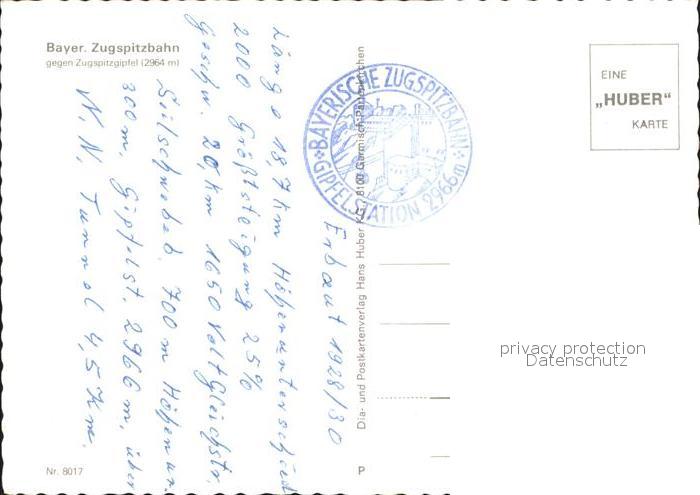 Bayer. Zugspitzbahn
gegen Zugspitzgipfel (2964 m)
EINE
„HUBER"
KARTE
BAYERISCHE ZUGSPITZBAHN
GIPFELSTATION 2966 m
Erbaut 1928/30
Länge 18,7 km Höhenunterschied
2000 Größtsteigung 25%
Geschw. 20 km 1650 Volt Gleichstr.
Seilschwebeb. 700 m Höhenun.
300 m, Gipfelst. 2966 m, über
N.N. Tunnel 4,5 Km.
Dia- und Postkartenverlag Hans Huber KG, 8100 Garmisch-Partenkirchen
privacy protection
Datenschutz
Nr. 8017
P